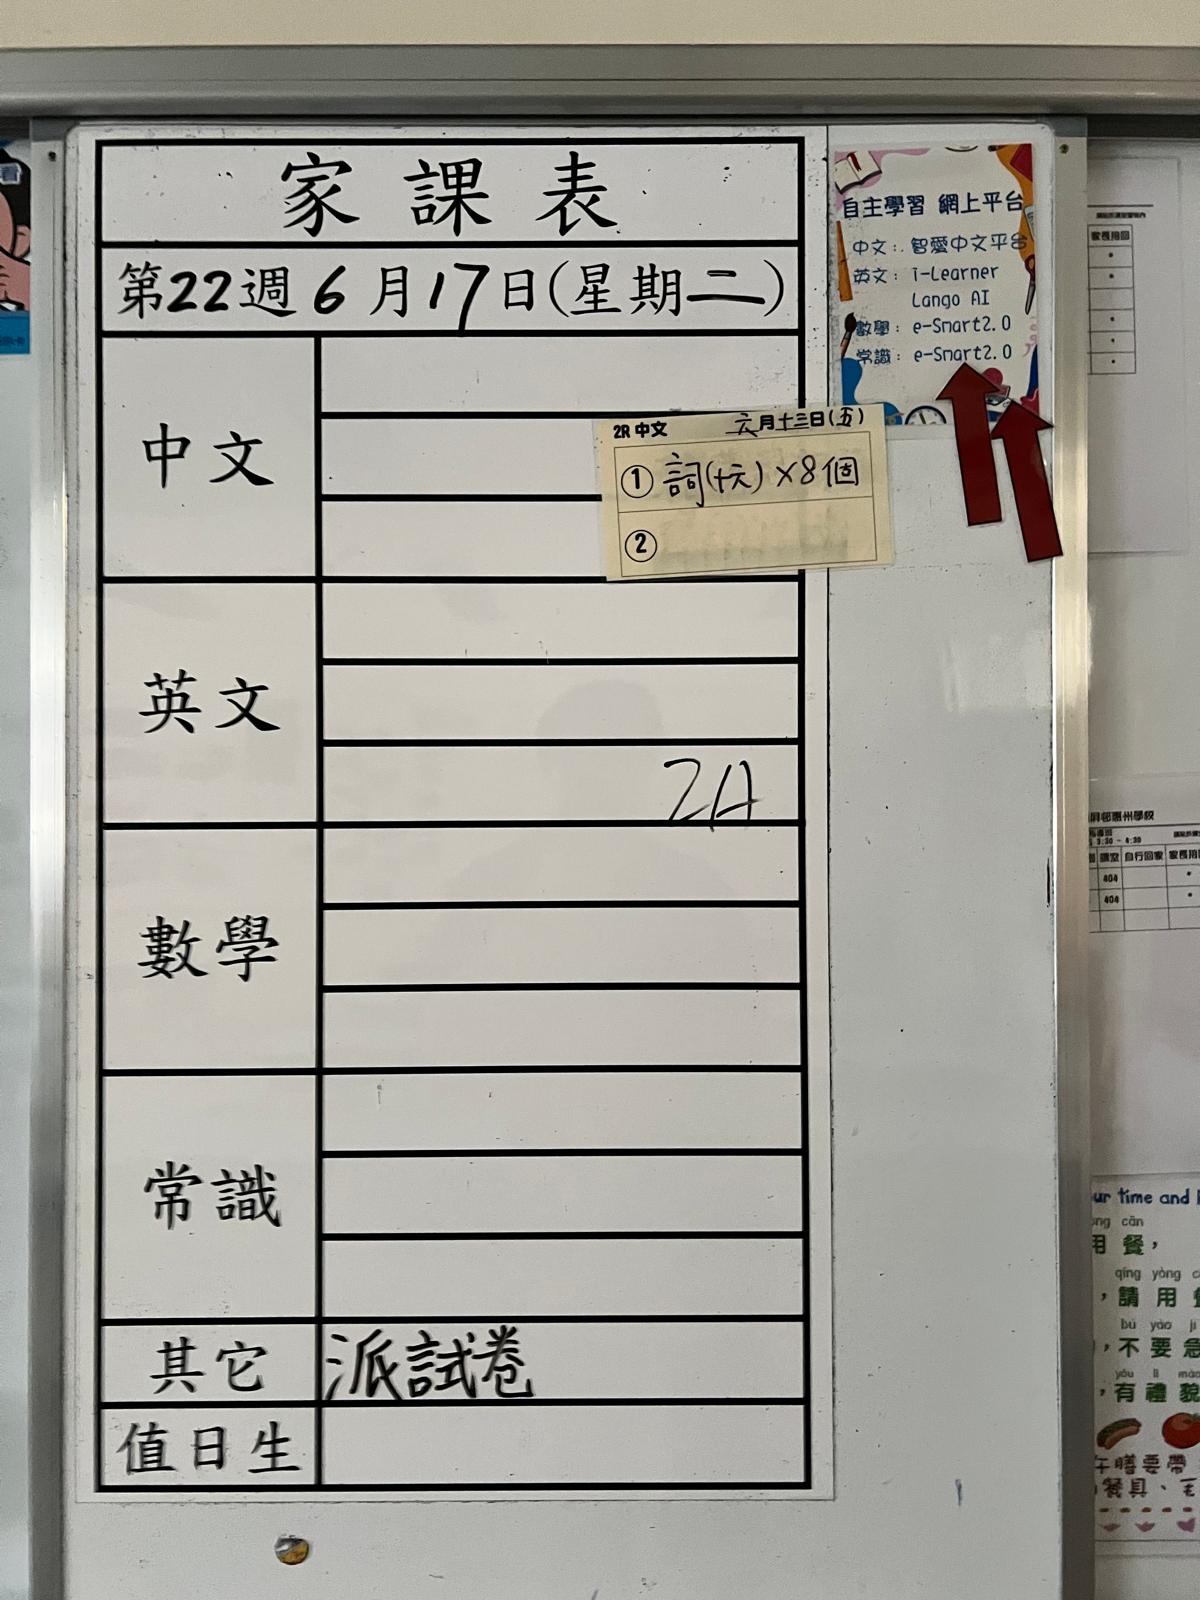 家課表
第22週6月17日(星期二)
中文
英文
2A
數學
常識
其它 派試卷
值日生
2R 中文 六月十三日(五)
① 詞(十六)×8個
②
自主學習 網上平台
中文: 智愛中文平台
英文: i-Learner
Lango AI
數學: e-Smart2.0
常識: e-Smart2.0
看
家長接回
惠州學校
3:30 - 4:30
課室 自行回家
404
404
ur time and
cān
用 餐，
qǐng yòng
，請 用
bú yào jí
，不 要 急
yǒu lǐ mào
，有 禮 貌
午膳要帶
餐具、毛